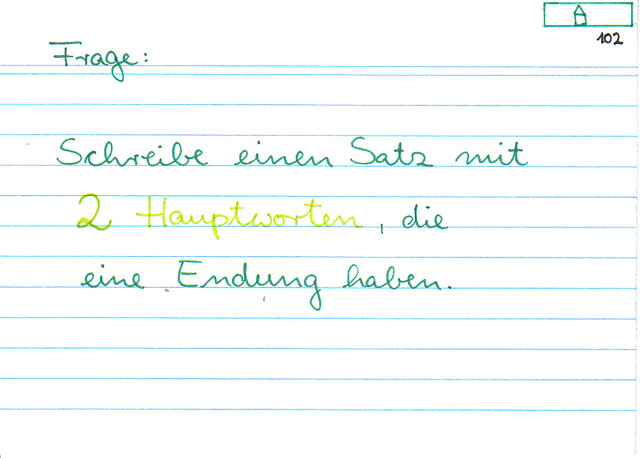 102
Frage:
Schreibe einen Satz mit
2 Hauptworten, die
eine Endung haben.